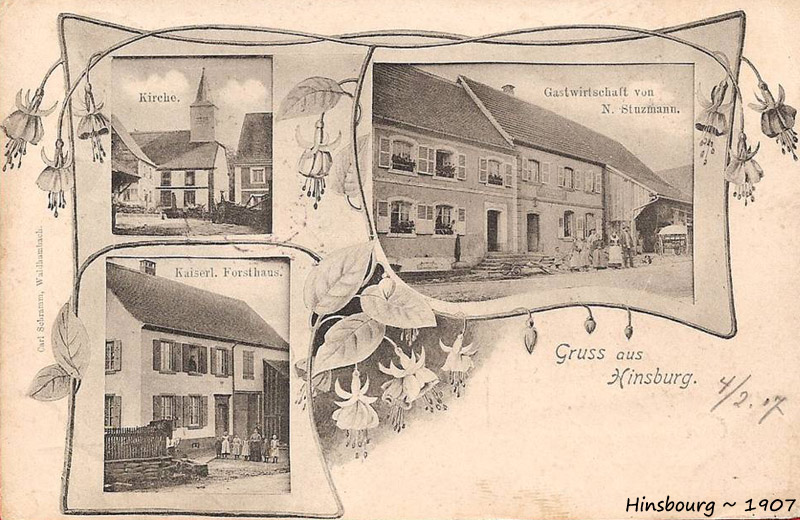 Kirche.
Gastwirtschaft von
N. Stuzmann.
Kaiserl. Forsthaus.
Carl Schramm, Waldhambach.
Gruss aus
Hinsburg.
4/2. 07
Hinsbourg ~ 1907